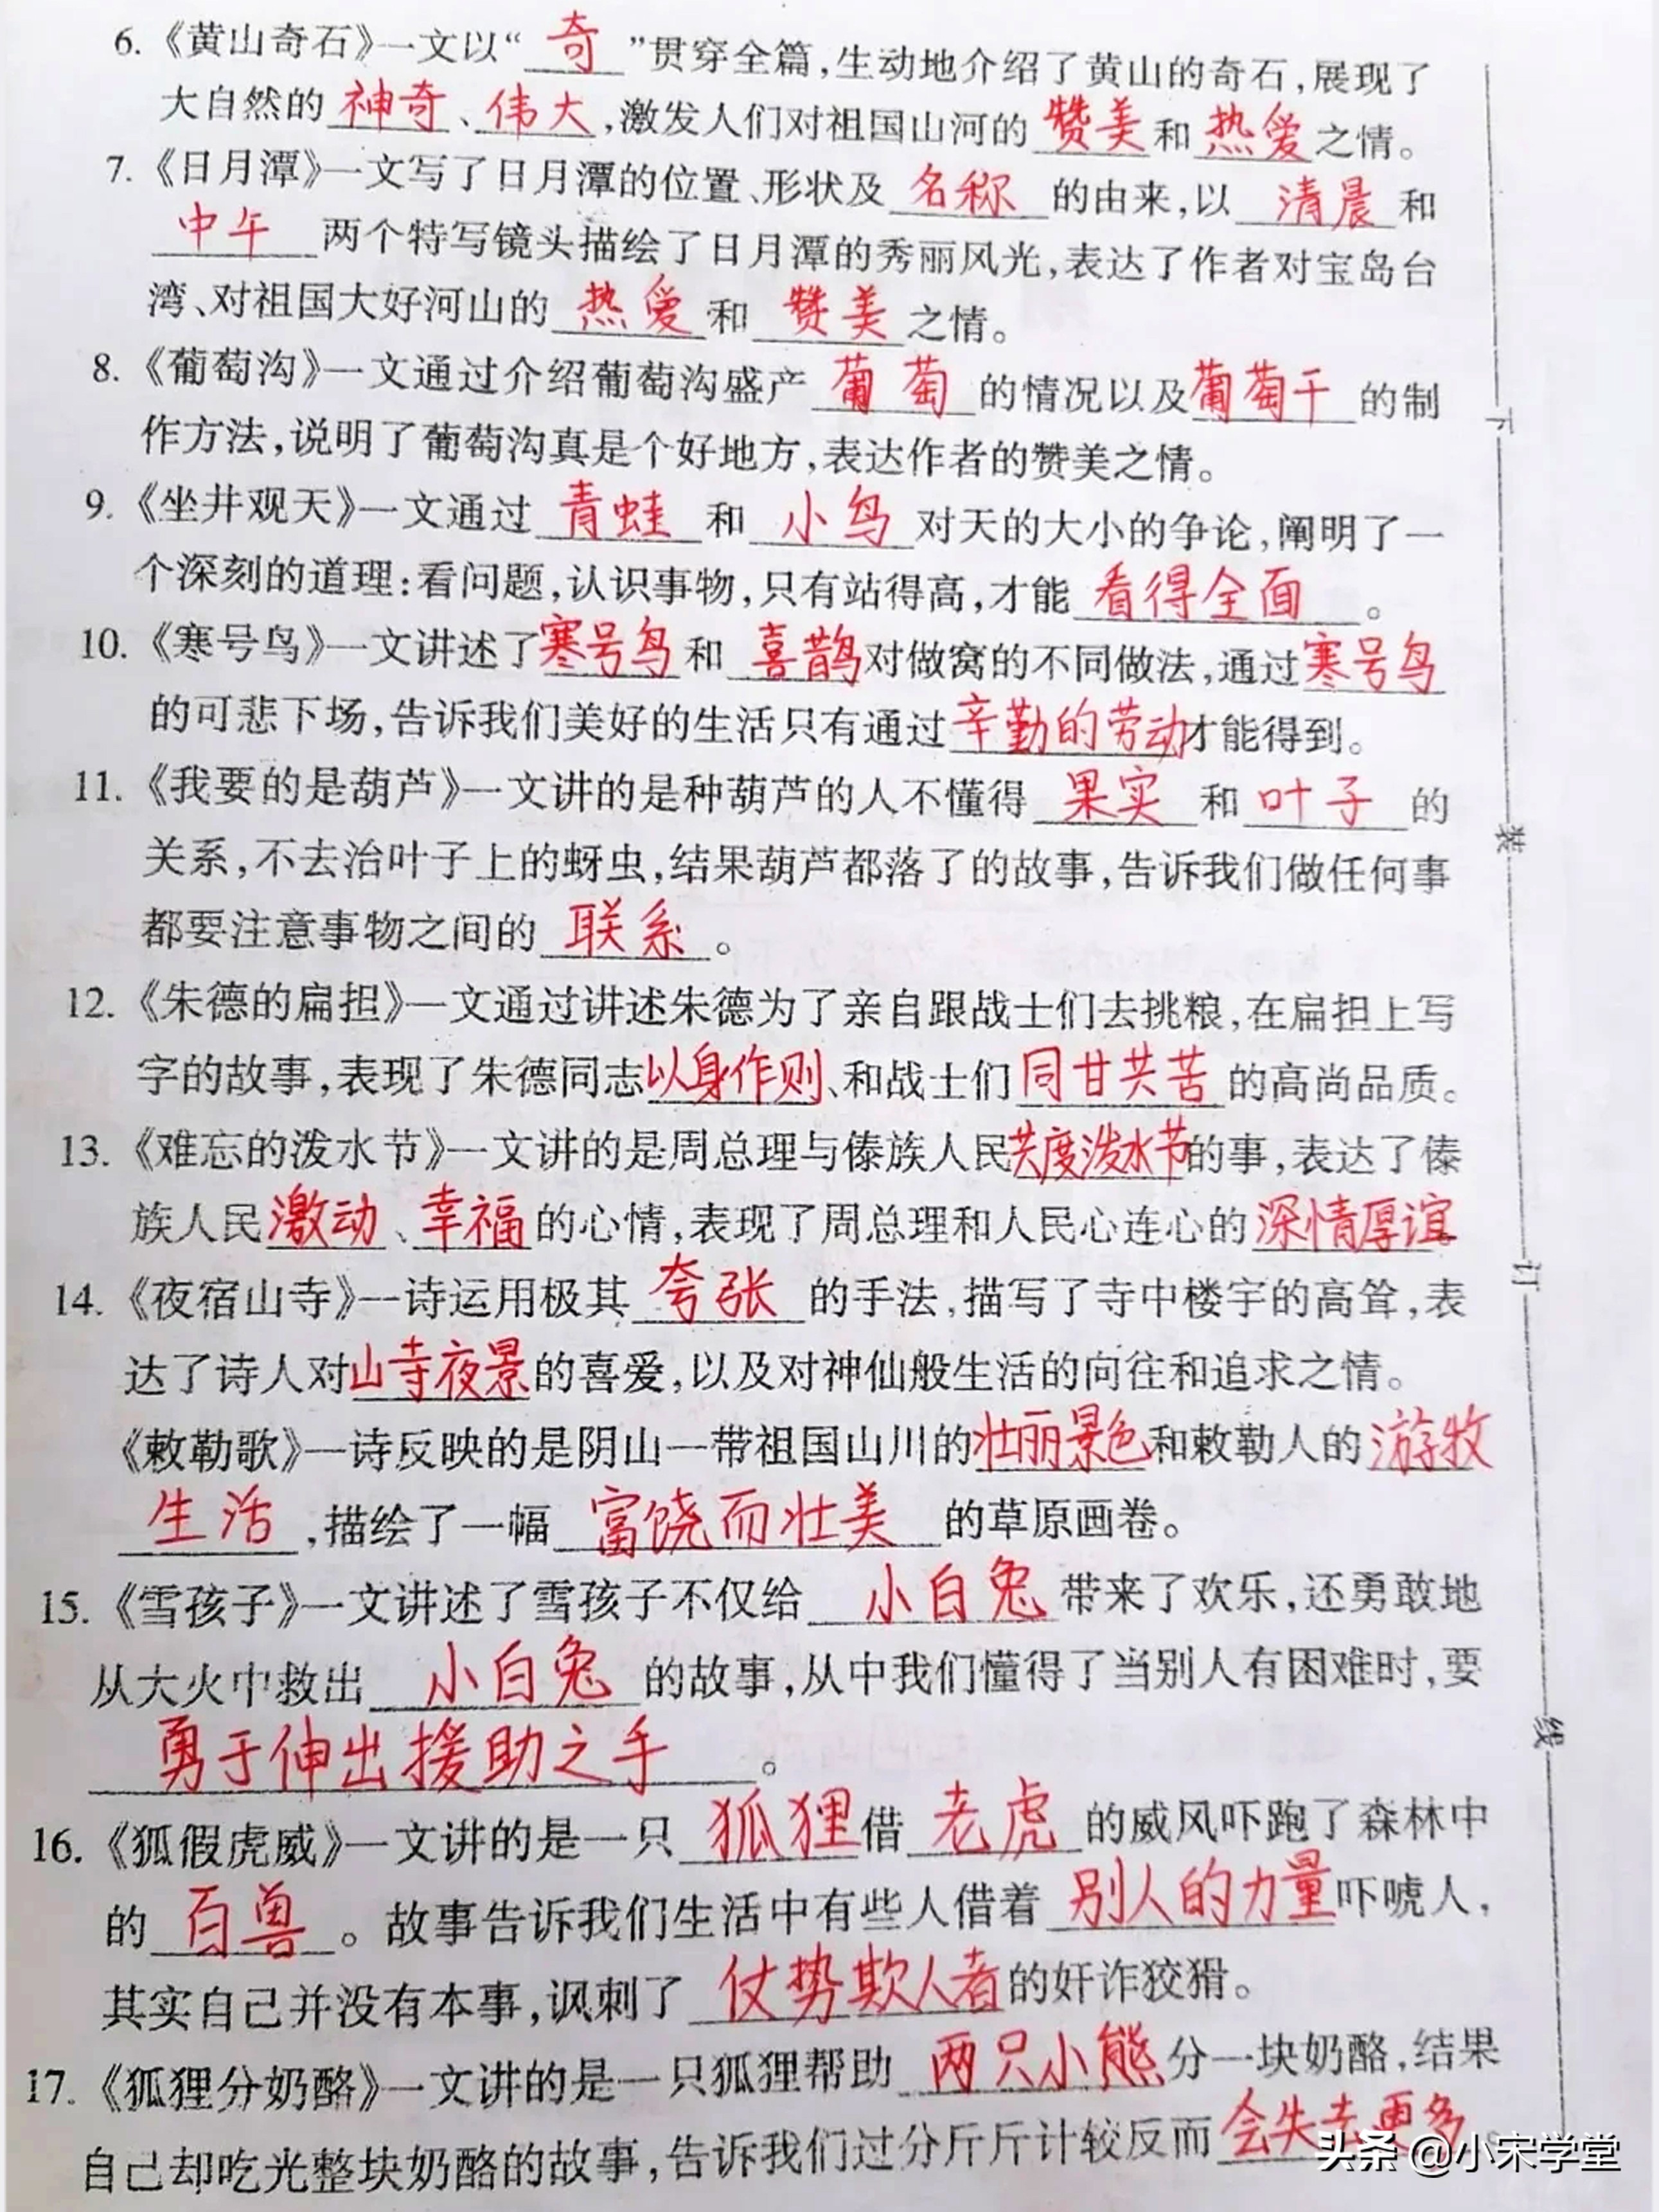 6.《黄山奇石》一文以“奇”贯穿全篇,生动地介绍了黄山的奇石,展现了
大自然的神奇、伟大,激发人们对祖国山河的赞美和热爱之情。
7.《日月潭》一文写了日月潭的位置、形状及名称的由来,以清晨和
中午两个特写镜头描绘了日月潭的秀丽风光,表达了作者对宝岛台
湾、对祖国大好河山的热爱和赞美之情。
8.《葡萄沟》一文通过介绍葡萄沟盛产葡萄的情况以及葡萄干的制
作方法,说明了葡萄沟真是个好地方,表达作者的赞美之情。
9.《坐井观天》一文通过青蛙和小鸟对天的大小的争论,阐明了一
个深刻的道理:看问题,认识事物,只有站得高,才能看得全面。
10.《寒号鸟》一文讲述了寒号鸟和喜鹊对做窝的不同做法,通过寒号鸟
的可悲下场,告诉我们美好的生活只有通过辛勤的劳动才能得到。
11.《我要的是葫芦》一文讲的是种葫芦的人不懂得果实和叶子的
关系,不去治叶子上的蚜虫,结果葫芦都落了的故事,告诉我们做任何事
都要注意事物之间的联系。
12.《朱德的扁担》一文通过讲述朱德为了亲自跟战士们去挑粮,在扁担上写
字的故事,表现了朱德同志以身作则、和战士们同甘共苦的高尚品质。
13.《难忘的泼水节》一文讲的是周总理与傣族人民共度泼水节的事,表达了傣
族人民激动、幸福的心情,表现了周总理和人民心连心的深情厚谊。
14.《夜宿山寺》一诗运用极其夸张的手法,描写了寺中楼宇的高耸,表
达了诗人对山寺夜景的喜爱,以及对神仙般生活的向往和追求之情。
《敕勒歌》一诗反映的是阴山一带祖国山川的壮丽景色和敕勒人的游牧
生活,描绘了一幅富饶而壮美的草原画卷。
15.《雪孩子》一文讲述了雪孩子不仅给小白兔带来了欢乐,还勇敢地
从大火中救出小白兔的故事,从中我们懂得了当别人有困难时,要
勇于伸出援助之手。
16.《狐假虎威》一文讲的是一只狐狸借老虎的威风吓跑了森林中
的百兽。故事告诉我们生活中有些人借着别人的力量吓唬人,
其实自己并没有本事,讽刺了仗势欺人者的奸诈狡猾。
17.《狐狸分奶酪》一文讲的是一只狐狸帮助两只小熊分一块奶酪,结果
自己却吃光整块奶酪的故事,告诉我们过分斤斤计较反而会失去更多
下
装
订
线
头条 @小宋学堂